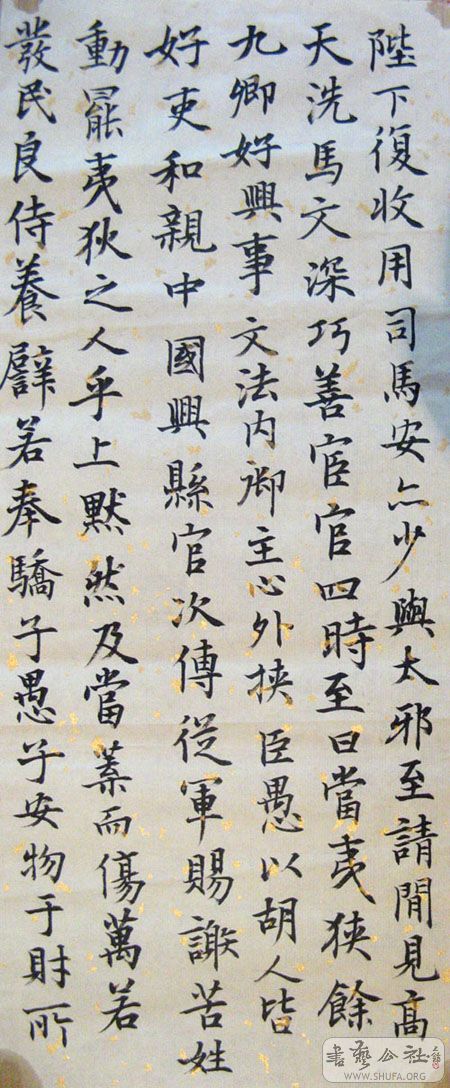 陛下復收用司馬安亦少與太邪至請閒見高
天洗馬文深巧善宦官四時至曰當夷狹餘
九卿好興事文法内御主心外挾臣愚以胡人皆
好吏和親中國興縣官次傳從軍賜謝苦姓
動罷夷狄之人乎上默然及當葉而傷萬若
發民良侍養譬若奉驕子愚子安物于財所
書藝公社
WWW.SHUFA.ORG